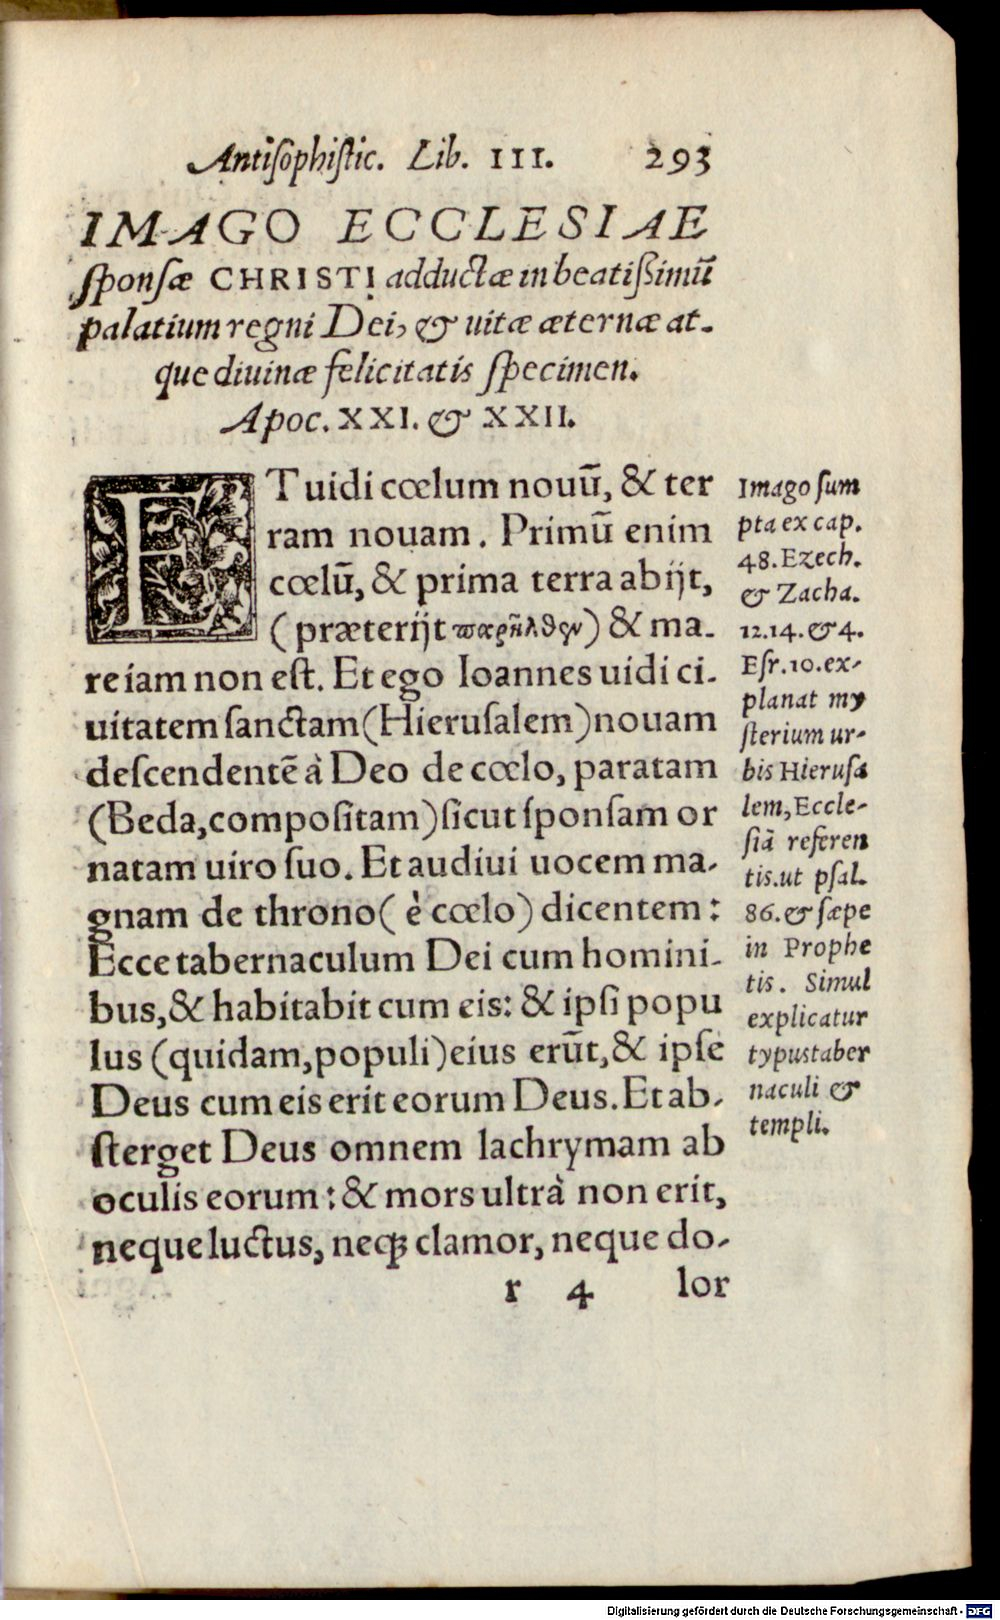 Antisophistic. Lib. III. 293
IMAGO ECCLESIAE
sponsæ CHRISTI adductæ in beatißimū
palatium regni Dei, & uitæ æternæ at-
que diuinæ felicitatis specimen.
Apoc. XXI. & XXII.
ET uidi cœlum nouū, & ter
ram nouam. Primū enim
cœlū, & prima terra abijt,
(præterijt παρῆλθεν) & ma-
re iam non est. Et ego Ioannes uidi ci-
uitatem sanctam (Hierusalem) nouam
descendentē à Deo de cœlo, paratam
(Beda, compositam) sicut sponsam or
natam uiro suo. Et audiui uocem ma-
gnam de throno (è cœlo) dicentem:
Ecce tabernaculum Dei cum homini-
bus, & habitabit cum eis: & ipsi popu
lus (quidam, populi) eius erūt, & ipse
Deus cum eis erit eorum Deus. Et ab-
sterget Deus omnem lachrymam ab
oculis eorum: & mors ultrà non erit,
neque luctus, neqꝫ clamor, neque do-
r 4 lor
Imago sum
pta ex cap.
48. Ezech.
& Zacha.
12.14. & 4.
Esr. 10. ex-
planat my
sterium ur-
bis Hierusa
lem, Eccle-
siā referen
tis. ut psal.
86. & sæpe
in Prophe
tis. Simul
explicatur
typus taber
naculi &
templi.
Digitalisierung gefördert durch die Deutsche Forschungsgemeinschaft - DFG